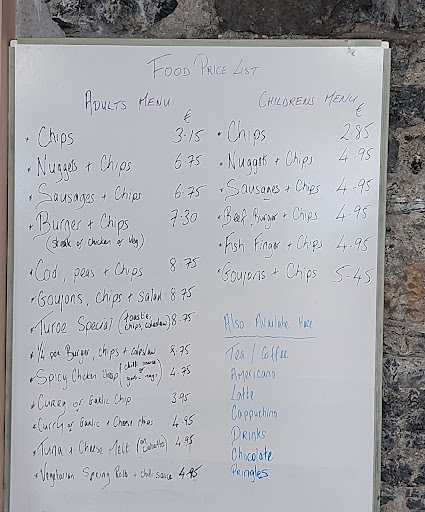 FOOD PRICE LIST
ADULTS MENU
€
• Chips 3.15
• Nuggets + Chips 6.75
• Sausages + Chips 6.75
• Burger + Chips 7.30
(Steak or Chicken or Veg)
• Cod, peas + Chips 8.75
• Goujons, chips + salad 8.75
• Turoe Special (toastie, chips, coleslaw) 8.75
• ¼ pou Burger, chips + coleslaw 8.75
• Spicy Chicken (chilli sauce or garlic mayo) 4.75
• Curry or Garlic Chip 3.95
• Curry or Garlic + Cheese chips 4.95
• Tuna + Cheese Melt (on Ciabatta) 4.95
• Vegetarian Spring Rolls + chilli sauce 4.95
CHILDRENS MENU
€
• Chips 2.85
• Nuggets + Chips 4.95
• Sausages + Chips 4.95
• Beef Burger + Chips 4.95
• Fish Finger + Chips 4.95
• Goujons + Chips 5.45
Also Available Here
Tea / Coffee
Americano
Latte
Cappuchino
Drinks
Chocolate
Pringles